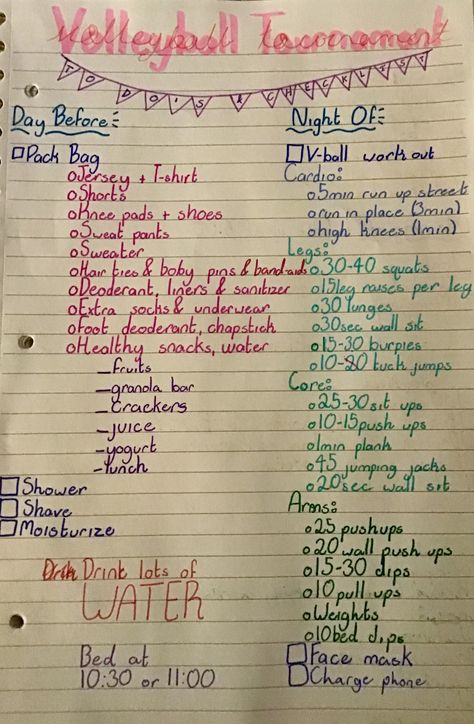 Volleyball Tournament
TO DO'S & CHECKLIST
Day Before:
Pack Bag
Jersey + T-shirt
Shorts
Knee pads + shoes
Sweat pants
Sweater
Hair ties & boby pins & band-aids
Deodorant, liners & sanitizer
Extra socks & underwear
Foot deodorant, chapstick
Healthy snacks, water
fruits
granola bar
crackers
juice
yogurt
lunch
Shower
Shave
Moisturize
Drink lots of
WATER
Bed at
10:30 or 11:00
Night Of:
V-ball work out
Cardio:
5min run up street
run in place (3min)
high knees (1min)
Legs:
30-40 squats
15leg raises per leg
30 lunges
30sec wall sit
15-30 burpies
10-20 tuck jumps
Core:
25-30 sit ups
10-15 push ups
1min plank
45 jumping jacks
20sec wall sit
Arms:
25 pushups
20 wall push ups
15-30 dips
10 pull ups
Weights
10 bed dips
Face mask
Charge phone